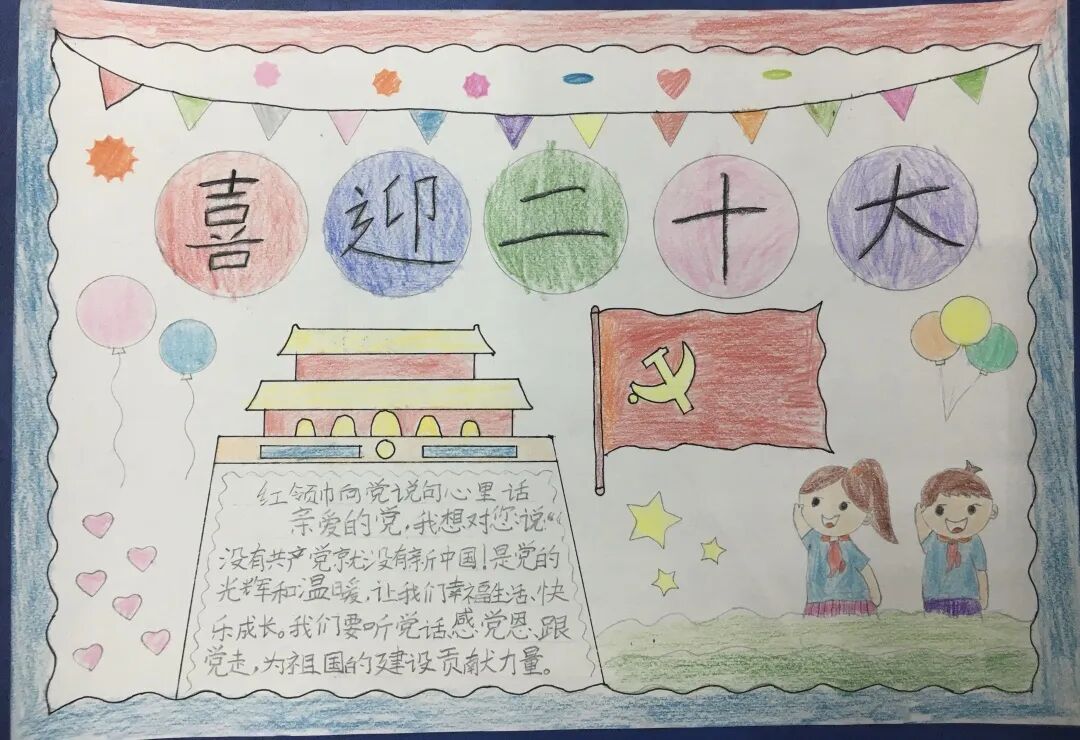 喜迎二十大
红领巾向党说句心里话
亲爱的党,我想对您说“
没有共产党就没有新中国!是党的
光辉和温暖,让我们幸福生活、快
乐成长。我们要听党话、感党恩、跟
党走,为祖国的建设贡献力量。